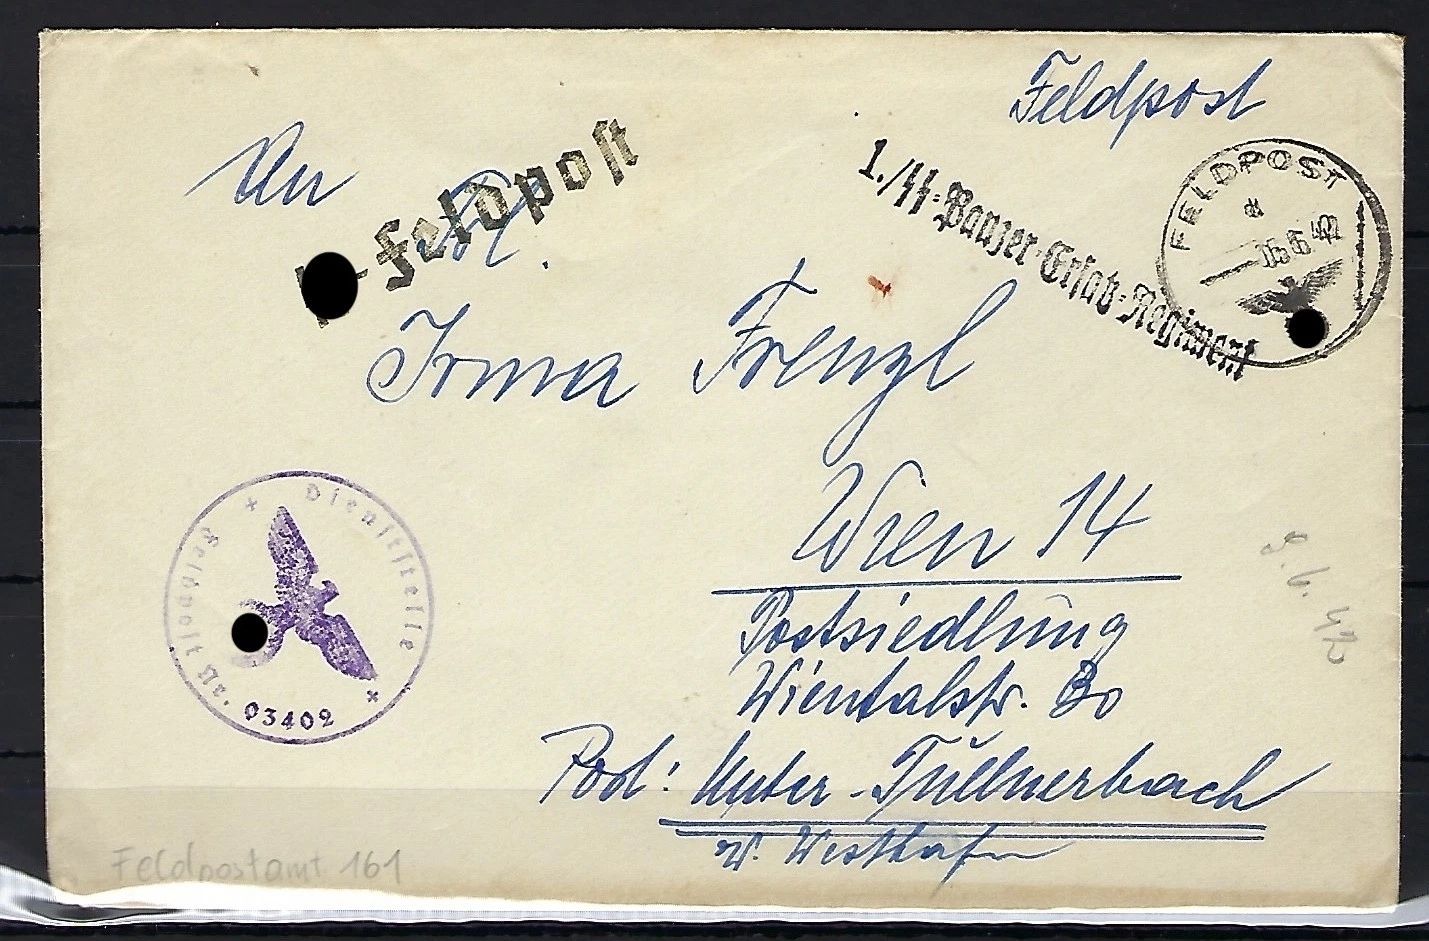 Feldpost
An
Feldpost
1./SS-Panzer-Ersatz-Regiment
FELDPOST
a
Irma Frenzl
Wien 14
Postsiedlung
Wientalstr. 30
Post: Unter-Tullnerbach
Dienststelle
Feldpost Nr.
03402
Feldpostamt 161